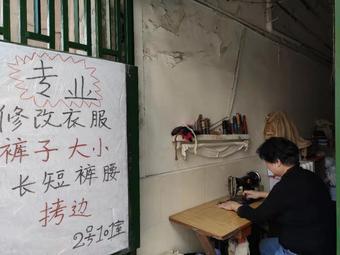 专业
修改衣服
裤子大小
长短裤腰
拷边
2号101室